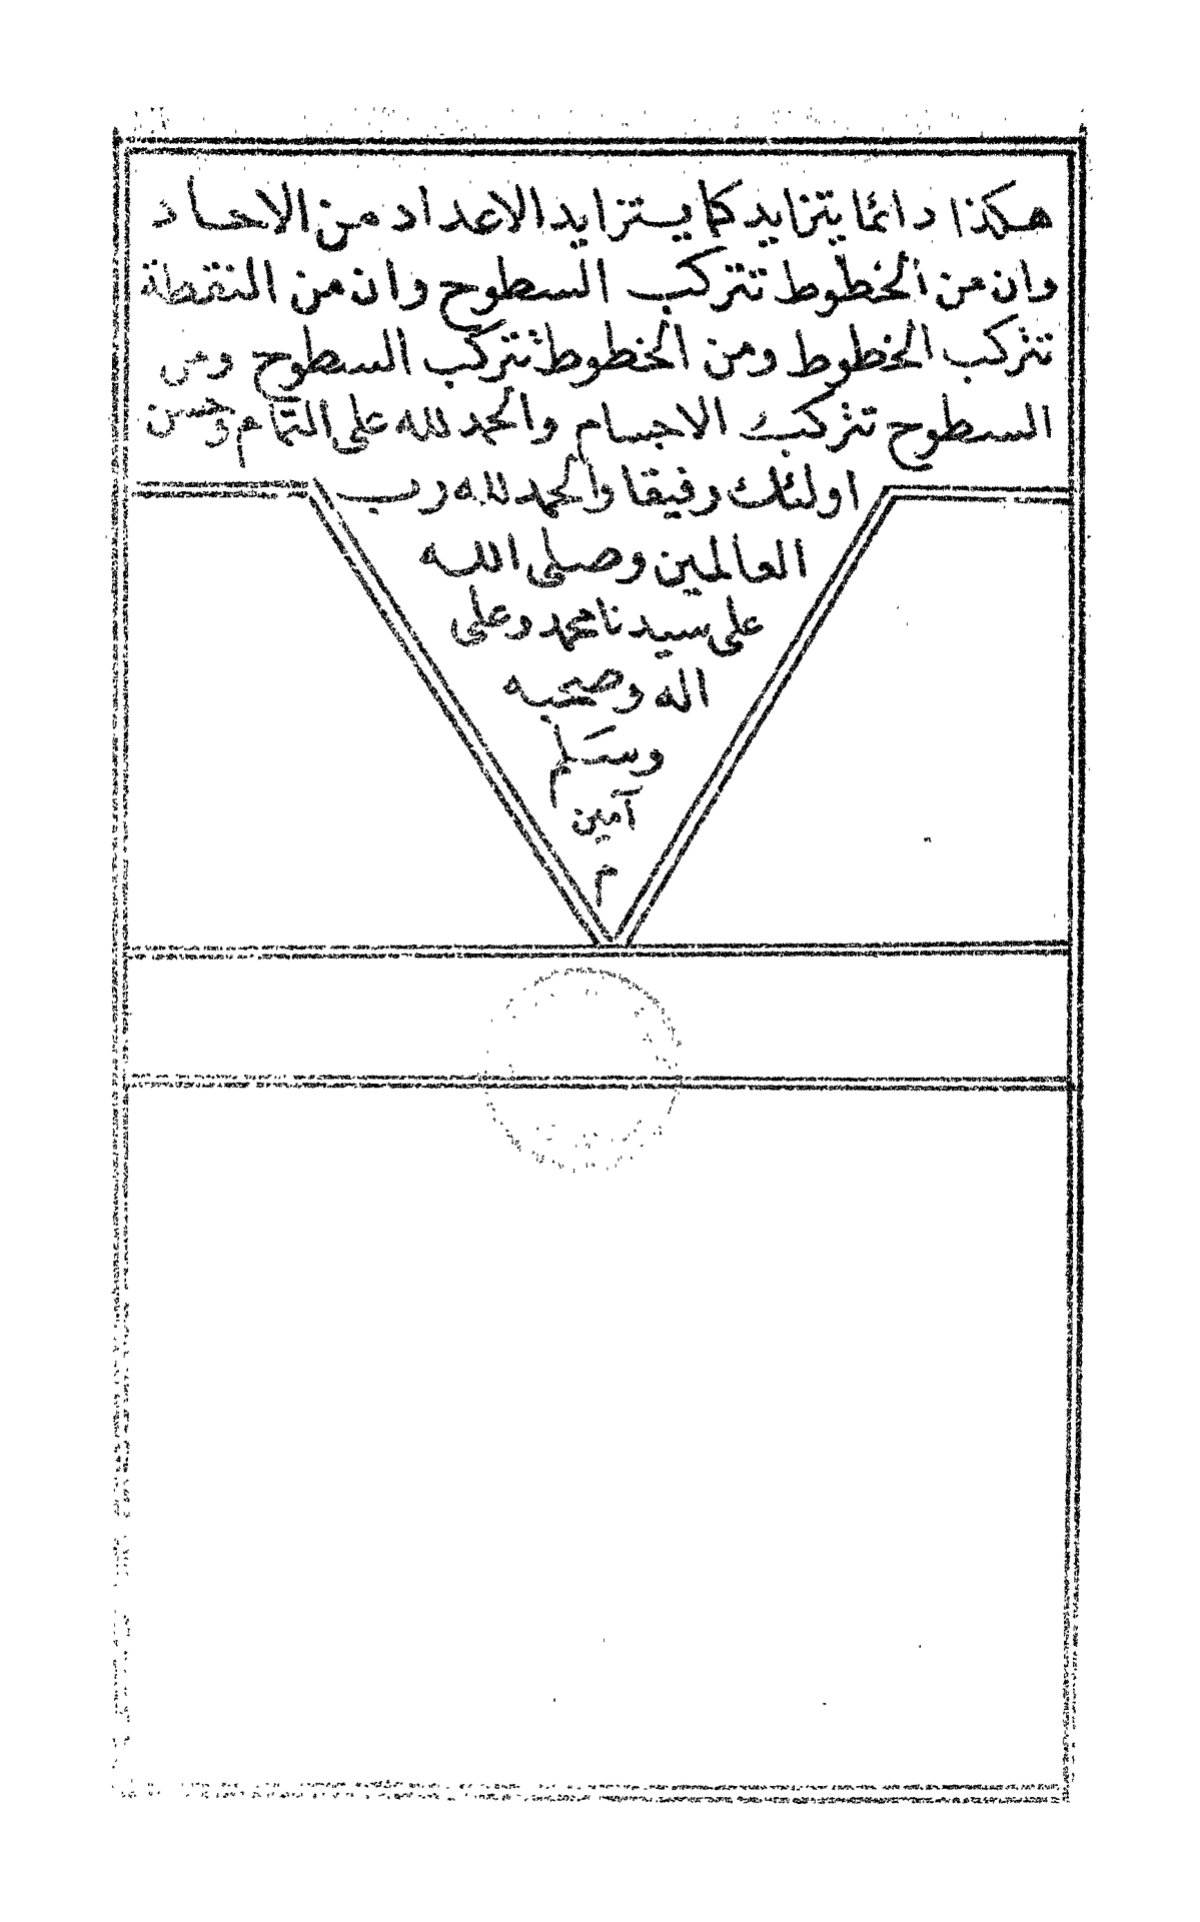 هكذا دائما يتزايد كما يستزايد الاعداد من الاحاد
وان من الخطوط تتركب السطوح وان من النقطة
تتركب الخطوط ومن الخطوط تتركب السطوح ومن
السطوح تتركب الاجسام والحمد لله على التمام وحسن
اولئك رفيقا والحمد لله رب
العالمين وصلى الله
على سيدنا محمد وعلى
اله وصحبه
وسلم
آمين
م